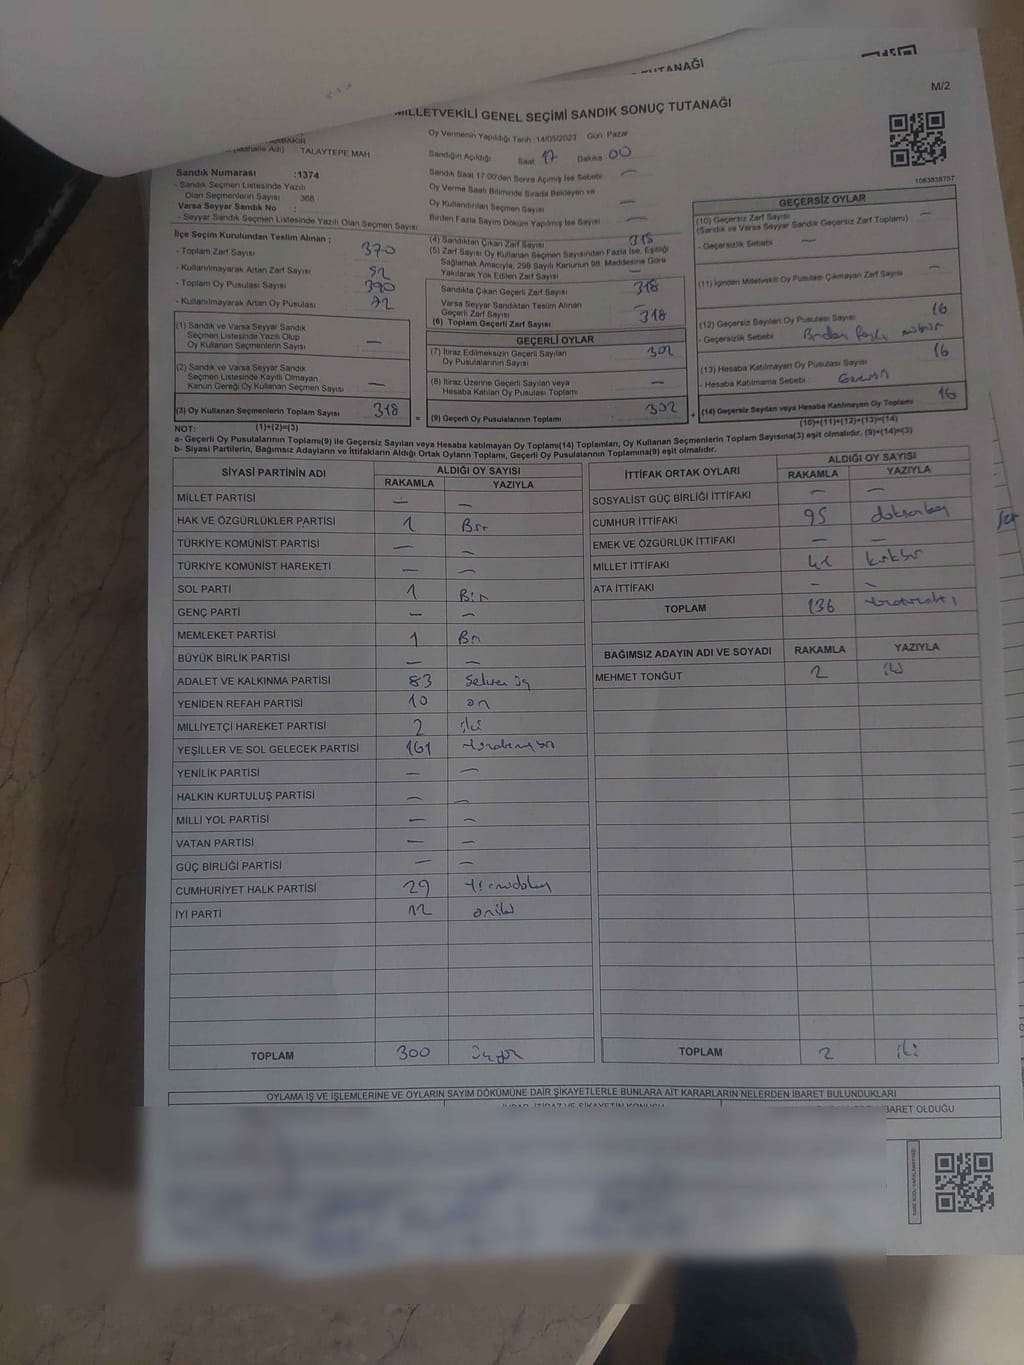 TUTANAĞI
M/2
MİLLETVEKİLİ GENEL SEÇİMİ SANDIK SONUÇ TUTANAĞI
1083838757
Adı) TALAYTEPE MAH
Sandık Numarası :1374
- Sandık Seçmen Listesinde Yazılı
Olan Seçmenlerin Sayısı 368
Varsa Seyyar Sandık No :
- Seyyar Sandık Seçmen Listesinde Yazılı Olan Seçmen Sayısı
Oy Vermenin Yapıldığı Tarih :14/05/2023 Gün :Pazar
Sandığın Açıldığı Saat 17 Dakika 00
Sandık Saat 17:00'den Sonra Açılmış İse Sebebi : —
Oy Verme Saati Bitiminde Sırada Bekleyen ve
Oy Kullandırılan Seçmen Sayısı —
Birden Fazla Sayım Döküm Yapılmış İse Sayısı —
İlçe Seçim Kurulundan Teslim Alınan ;
- Toplam Zarf Sayısı 370
- Kullanılmayarak Artan Zarf Sayısı 52
- Toplam Oy Pusulası Sayısı 390
- Kullanılmayarak Artan Oy Pusulası 72
(1) Sandık ve Varsa Seyyar Sandık
Seçmen Listesinde Yazılı Olup
Oy Kullanan Seçmenlerin Sayısı —
(2) Sandık ve Varsa Seyyar Sandık
Seçmen Listesinde Kayıtlı Olmayan
Kanun Gereği Oy Kullanan Seçmen Sayısı —
(3) Oy Kullanan Seçmenlerin Toplam Sayısı 318
(1)+(2)=(3)
(4) Sandıktan Çıkan Zarf Sayısı 318
(5) Zarf Sayısı Oy Kullanan Seçmen Sayısından Fazla İse, Eşitliği
Sağlamak Amacıyla, 298 Sayılı Kanunun 98. Maddesine Göre
Yakılarak Yok Edilen Zarf Sayısı —
Sandıkta Çıkan Geçerli Zarf Sayısı 318
Varsa Seyyar Sandıktan Teslim Alınan
Geçerli Zarf Sayısı —
(6) Toplam Geçerli Zarf Sayısı 318
GEÇERLİ OYLAR
(7) İtiraz Edilmeksizin Geçerli Sayılan
Oy Pusulalarının Sayısı 302
(8) İtiraz Üzerine Geçerli Sayılan veya
Hesaba Katılan Oy Pusulası Toplamı —
= (9) Geçerli Oy Pusulalarının Toplamı 302 +
GEÇERSİZ OYLAR
(10) Geçersiz Zarf Sayısı —
(Sandık ve Varsa Seyyar Sandık Geçersiz Zarf Toplamı)
- Geçersizlik Sebebi : —
(11) İçinden Milletvekili Oy Pusulası Çıkmayan Zarf Sayısı —
(12) Geçersiz Sayılan Oy Pusulası Sayısı 16
- Geçersizlik Sebebi : Birden fazla mühür
(13) Hesaba Katılmayan Oy Pusulası Sayısı 16
- Hesaba Katılmama Sebebi :
(14) Geçersiz Sayılan veya Hesaba Katılmayan Oy Toplamı 16
(10)+(11)+(12)+(13)=(14)
NOT:
a- Geçerli Oy Pusulalarının Toplamı(9) ile Geçersiz Sayılan veya Hesaba katılmayan Oy Toplamı(14) Toplamları, Oy Kullanan Seçmenlerin Toplam Sayısına(3) eşit olmalıdır. (9)+(14)=(3)
b- Siyasi Partilerin, Bağımsız Adayların ve İttifakların Aldığı Ortak Oyların Toplamı, Geçerli Oy Pusulalarının Toplamına(9) eşit olmalıdır.
SİYASİ PARTİNİN ADI ALDIĞI OY SAYISI
RAKAMLA YAZIYLA
MİLLET PARTİSİ — —
HAK VE ÖZGÜRLÜKLER PARTİSİ 1 Bir
TÜRKİYE KOMÜNİST PARTİSİ — —
TÜRKİYE KOMÜNİST HAREKETİ — —
SOL PARTİ 1 Bir
GENÇ PARTİ — —
MEMLEKET PARTİSİ 1 Bir
BÜYÜK BİRLİK PARTİSİ — —
ADALET VE KALKINMA PARTİSİ 83 Seksen üç
YENİDEN REFAH PARTİSİ 10 on
MİLLİYETÇİ HAREKET PARTİSİ 2 iki
YEŞİLLER VE SOL GELECEK PARTİSİ 161
YENİLİK PARTİSİ — —
HALKIN KURTULUŞ PARTİSİ — —
MİLLİ YOL PARTİSİ — —
VATAN PARTİSİ — —
GÜÇ BİRLİĞİ PARTİSİ — —
CUMHURİYET HALK PARTİSİ 29 Yirmidokuz
İYİ PARTİ 12 oniki
TOPLAM 300 üçyüz
İTTİFAK ORTAK OYLARI ALDIĞI OY SAYISI
RAKAMLA YAZIYLA
SOSYALİST GÜÇ BİRLİĞİ İTTİFAKI — —
CUMHUR İTTİFAKI 95 doksanbeş
EMEK VE ÖZGÜRLÜK İTTİFAKI — —
MİLLET İTTİFAKI 41 kırkbir
ATA İTTİFAKI — —
TOPLAM 136 yüzotuzaltı
BAĞIMSIZ ADAYIN ADI VE SOYADI RAKAMLA YAZIYLA
MEHMET TONĞUT 2 iki
TOPLAM 2 iki
OYLAMA İŞ VE İŞLEMLERİNE VE OYLARIN SAYIM DÖKÜMÜNE DAİR ŞİKAYETLERLE BUNLARA AİT KARARLARIN NELERDEN İBARET BULUNDUKLARI
İBARET OLDUĞU